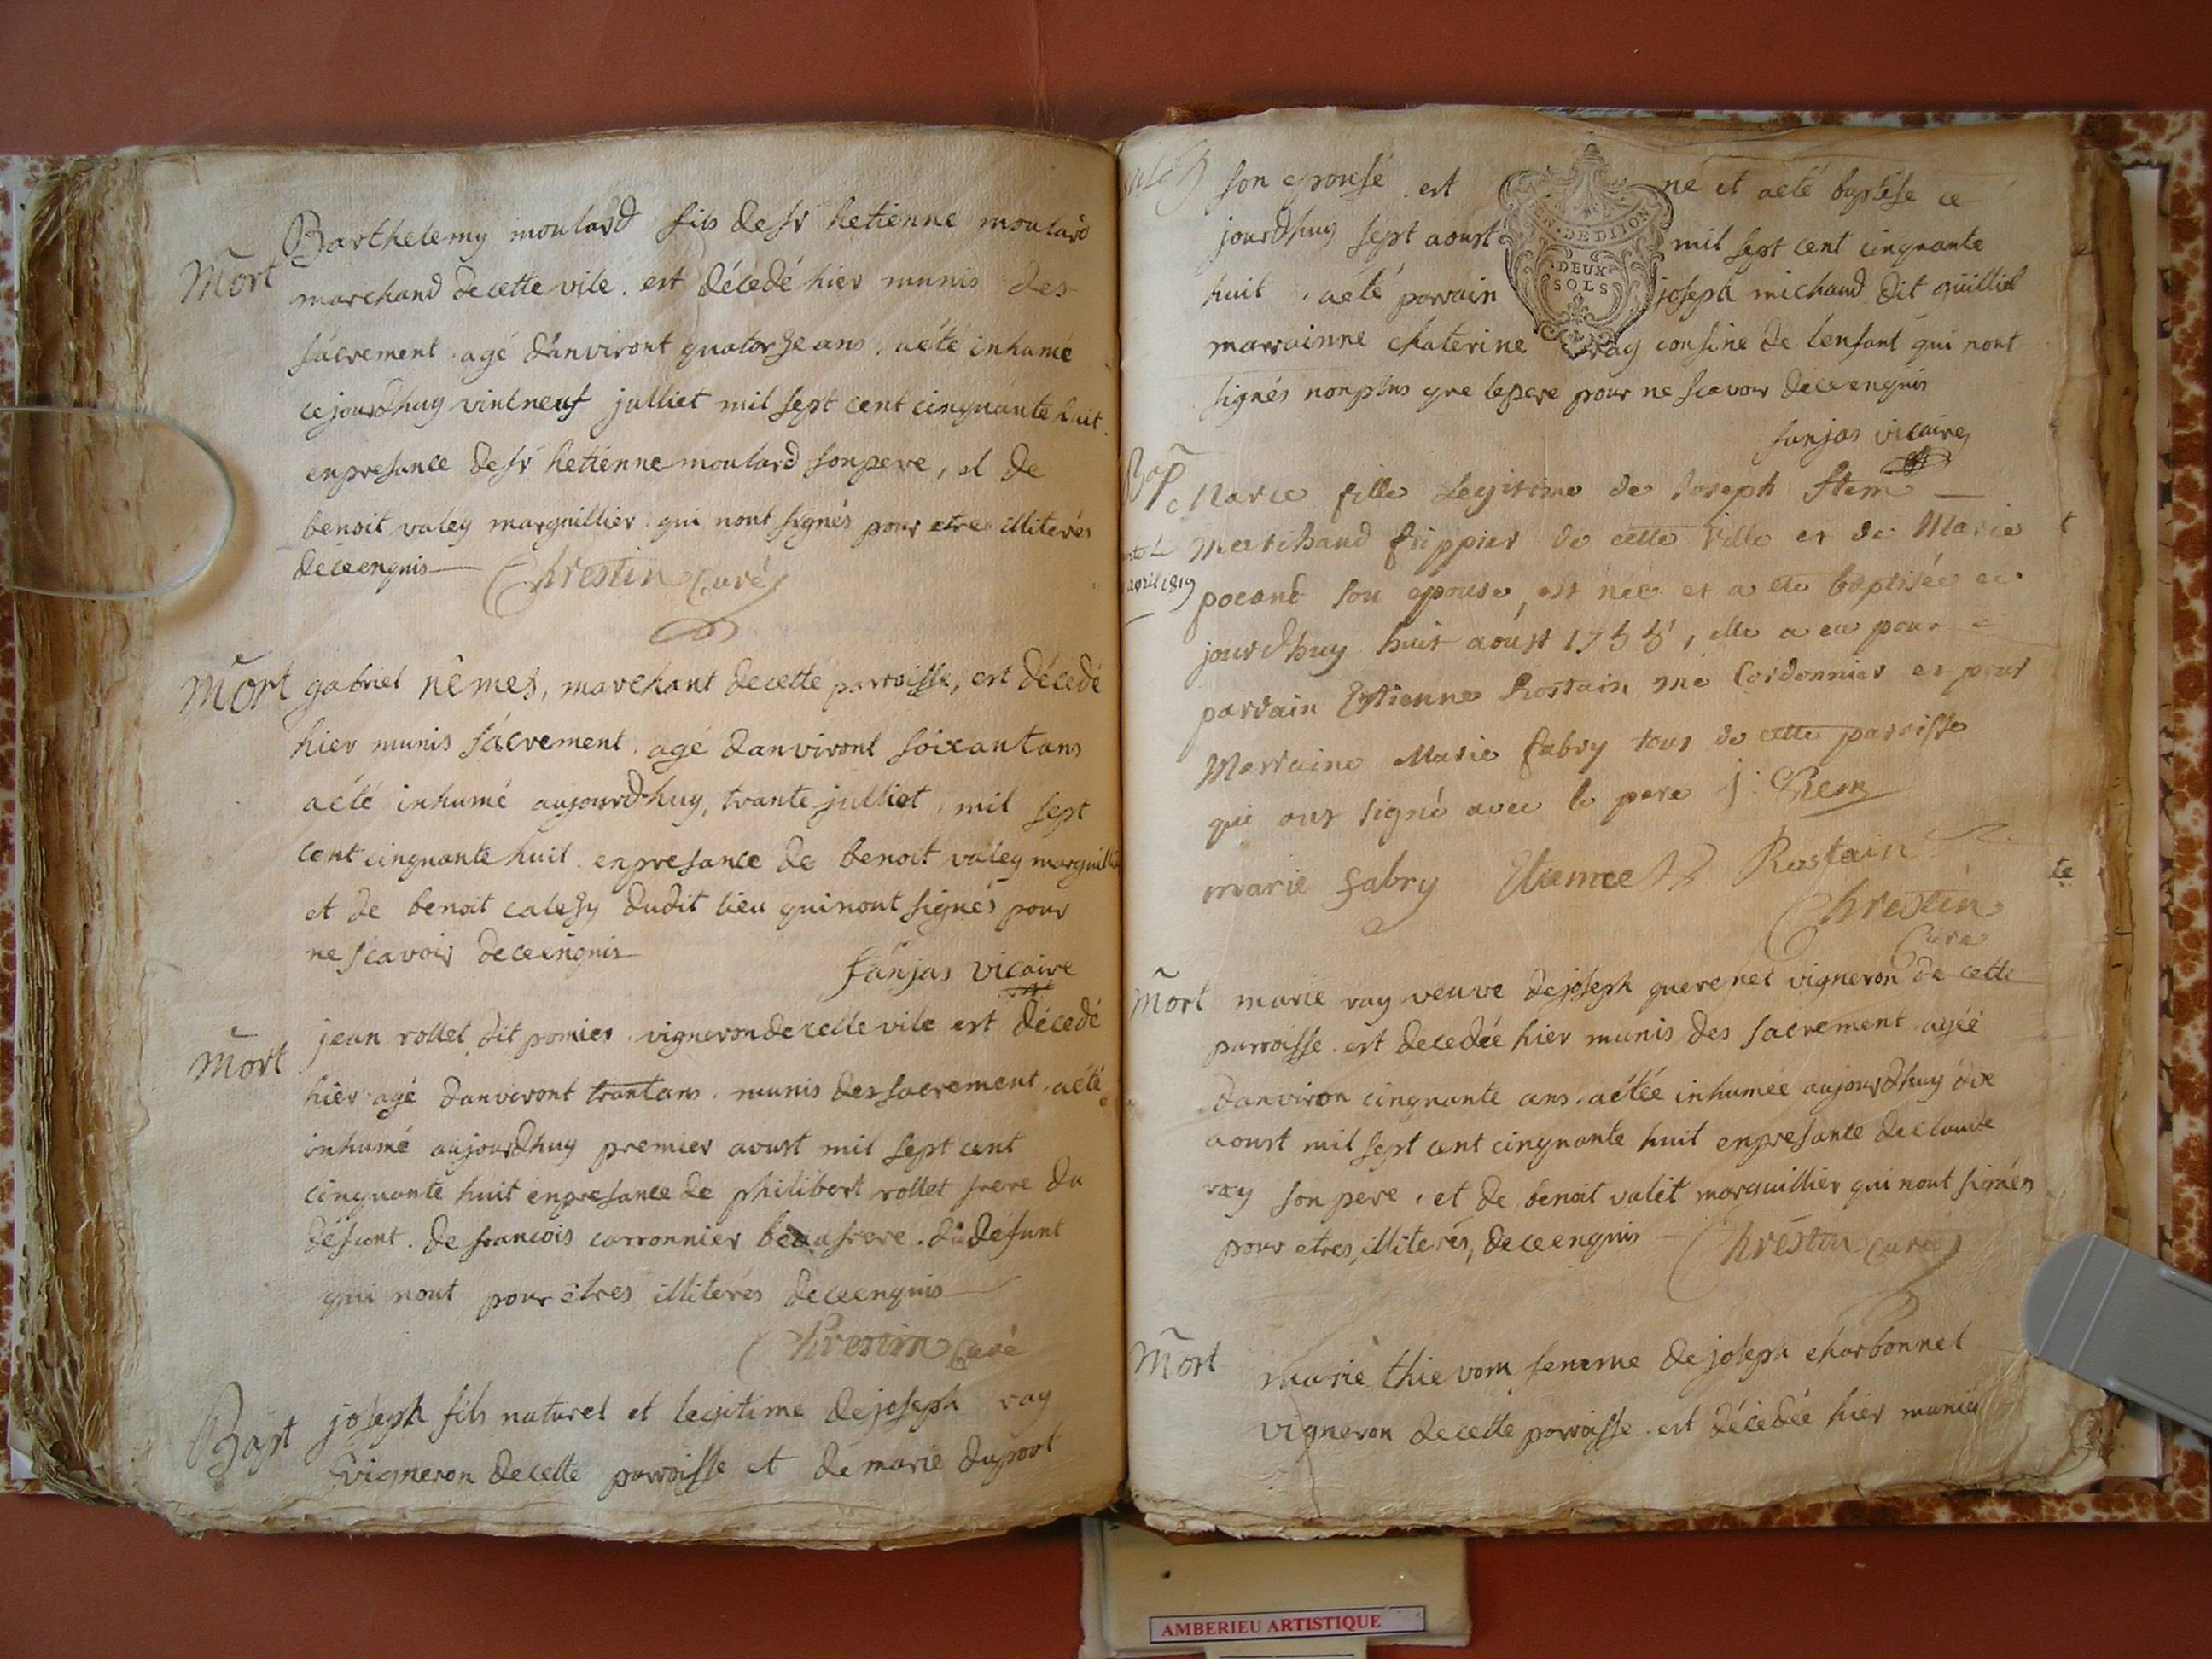 Mort
Barthelemy moulard fils de sr hetienne moulard
marchand de cette vile . est décedé hier munis des
sacrement . agé d'anviront quatorze ans . aété inhumé
cejourdhuy vintneuf julliet mil sept cent cinquante huit .
enpresance de sr hetienne moulard sonpere , et de
benoit valey marguillier . qui nont signés pour etre illiterés
deceenquis
Chrestin Curé
Mort
gabriel nêmes, marchant decette parroisse, est décedé
hier munis sácrement . agé danviront soixantans
aété inhumé aujourdhuy, trante julliet . mil sept
cent cinquante huit . enpresance de benoit valey marguillier
et de benoit calezy dudit lieu quinont signés pour
ne scavoir deceenquis
fanjas vicaire
Mort
jean rollet dit pomier . vigneron decette vile est décedé
hier agé danviront trantans . munis des sacrement . aété
inhumé aujourdhuy premier avust mil sept cent
cinquante huit enpresance de philibert rollet frere du
défunt . de francois carronnier beaufrere . du défunt
qui nont pour êtres illiterés deceenquis
Chrestin Curé
Bapt
joseph fils naturel et legitime de joseph ray
vigneron decette parroisse et de marie duport
son epouse est né et aeté baptese ce
jourdhuy sept aoust mil sept cent cinquante
huit . aeté parrain joseph michaud dit guilliet
marrainne chaterine ray cousine de lenfant qui nont
signés nonplus que lepere pour ne scavoir deceenquis
fanjas vicaire
GEN . DE DIJON
DEUX
SOLS
Bap
Marie fille Legitime de Joseph Stem
Marchand frippier de cette Ville et de Marie
pocand son epouse, est née et a ete baptisée ce
avril 1819
jourdhuy huit aoust 1758, elle a eu pour
parrain Estienne Rostain me Cordonnier et pour
Marraine Marie fabry tous de cette paroisse
qui ont signé avec le pere J. Stem
marie fabry Etienne Rostain
Chrestin
Curé
Mort
marie ray veuve dejoseph guerenet vigneron de cette
parroisse . est decedée hier munis des sacrement . agée
danviron cinquante ans . aétée inhumée aujourdhuy dix
aoust mil sept cent cinquante huit enpresance declaude
ray son pere . et de benoit valit marguillier qui nont signés
pour etres, illiterés, deceenquis
Chrestin Curé
Mort
marie thievom femme de joseph charbonnel
vigneron decette parroisse . est décedée hier munis
te
AMBERIEU ARTISTIQUE